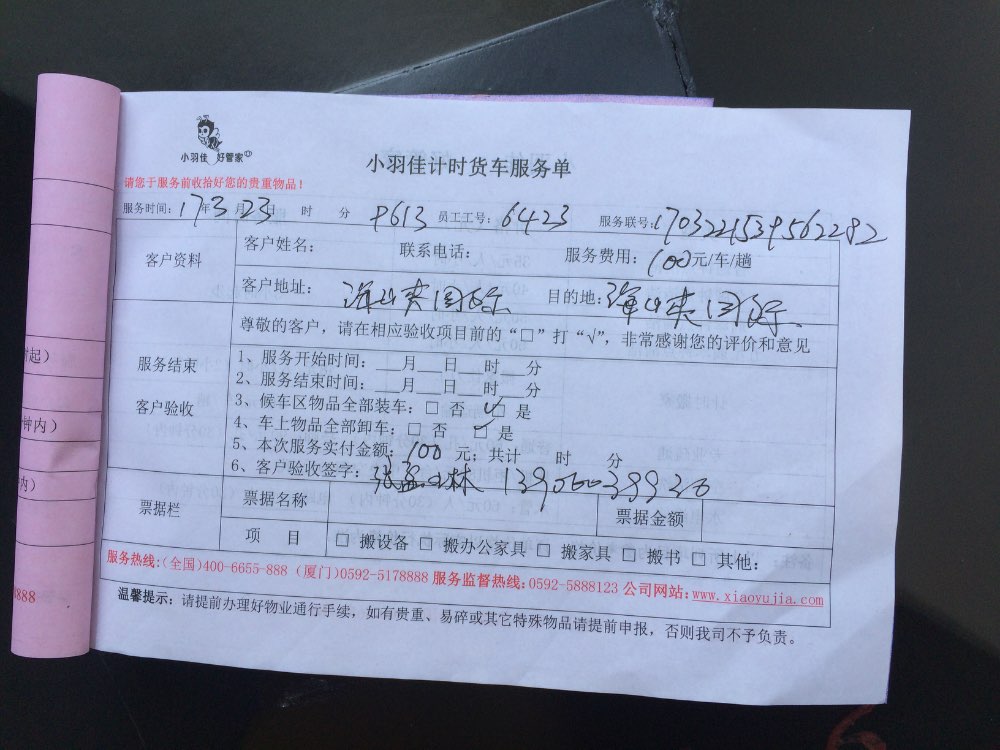 小羽佳 好管家
小羽佳计时货车服务单
请您于服务前收拾好您的贵重物品！
服务时间：17年3月23日 时 分 P613 员工工号：6423 服务联号：
客户资料 客户姓名： 联系电话： 服务费用：100元/车/趟
客户地址： 国际 目的地： 国际
尊敬的客户，请在相应验收项目前的“□”打“√”，非常感谢您的评价和意见
服务结束
客户验收
1、服务开始时间：___月___日___时___分
2、服务结束时间：___月___日___时___分
3、候车区物品全部装车：□ 否 ☑ 是
4、车上物品全部卸车：□ 否 ☑ 是
5、本次服务实付金额：100 元；共计 时 分
6、客户验收签字：
票据栏 票据名称 票据金额
项 目 □ 搬设备 □ 搬办公家具 □ 搬家具 □ 搬书 □ 其他：
服务热线：(全国)400-6655-888 (厦门)0592-5178888 服务监督热线：0592-5888123 公司网站：www.xiaoyujia.com
温馨提示：请提前办理好物业通行手续，如有贵重、易碎或其它特殊物品请提前申报，否则我司不予负责。
时起）
钟内）
内）
8888